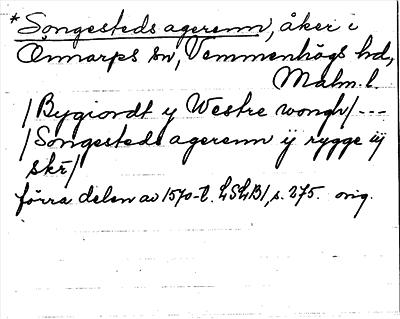 *Songesteds agerenn, åker i
Önnarps sn, Vemmenhögs hd,
Malm. l.
/Bygiordt y Westre wongh/---
/Songesteds agerenn ij rygge iij
skr̄/
förra delen av 1570-t. LSLB1, s. 275. orig.